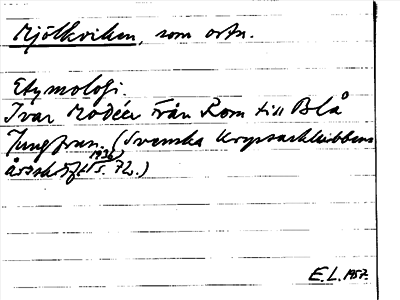 Mjölkviken, som ortn.
Etymologi.
Ivar Modéer Från Rom till Blå
Jungfrun. (Svenska Kryssarklubbens
årsskrift 1936, s. 72.)
E.L. 1957.